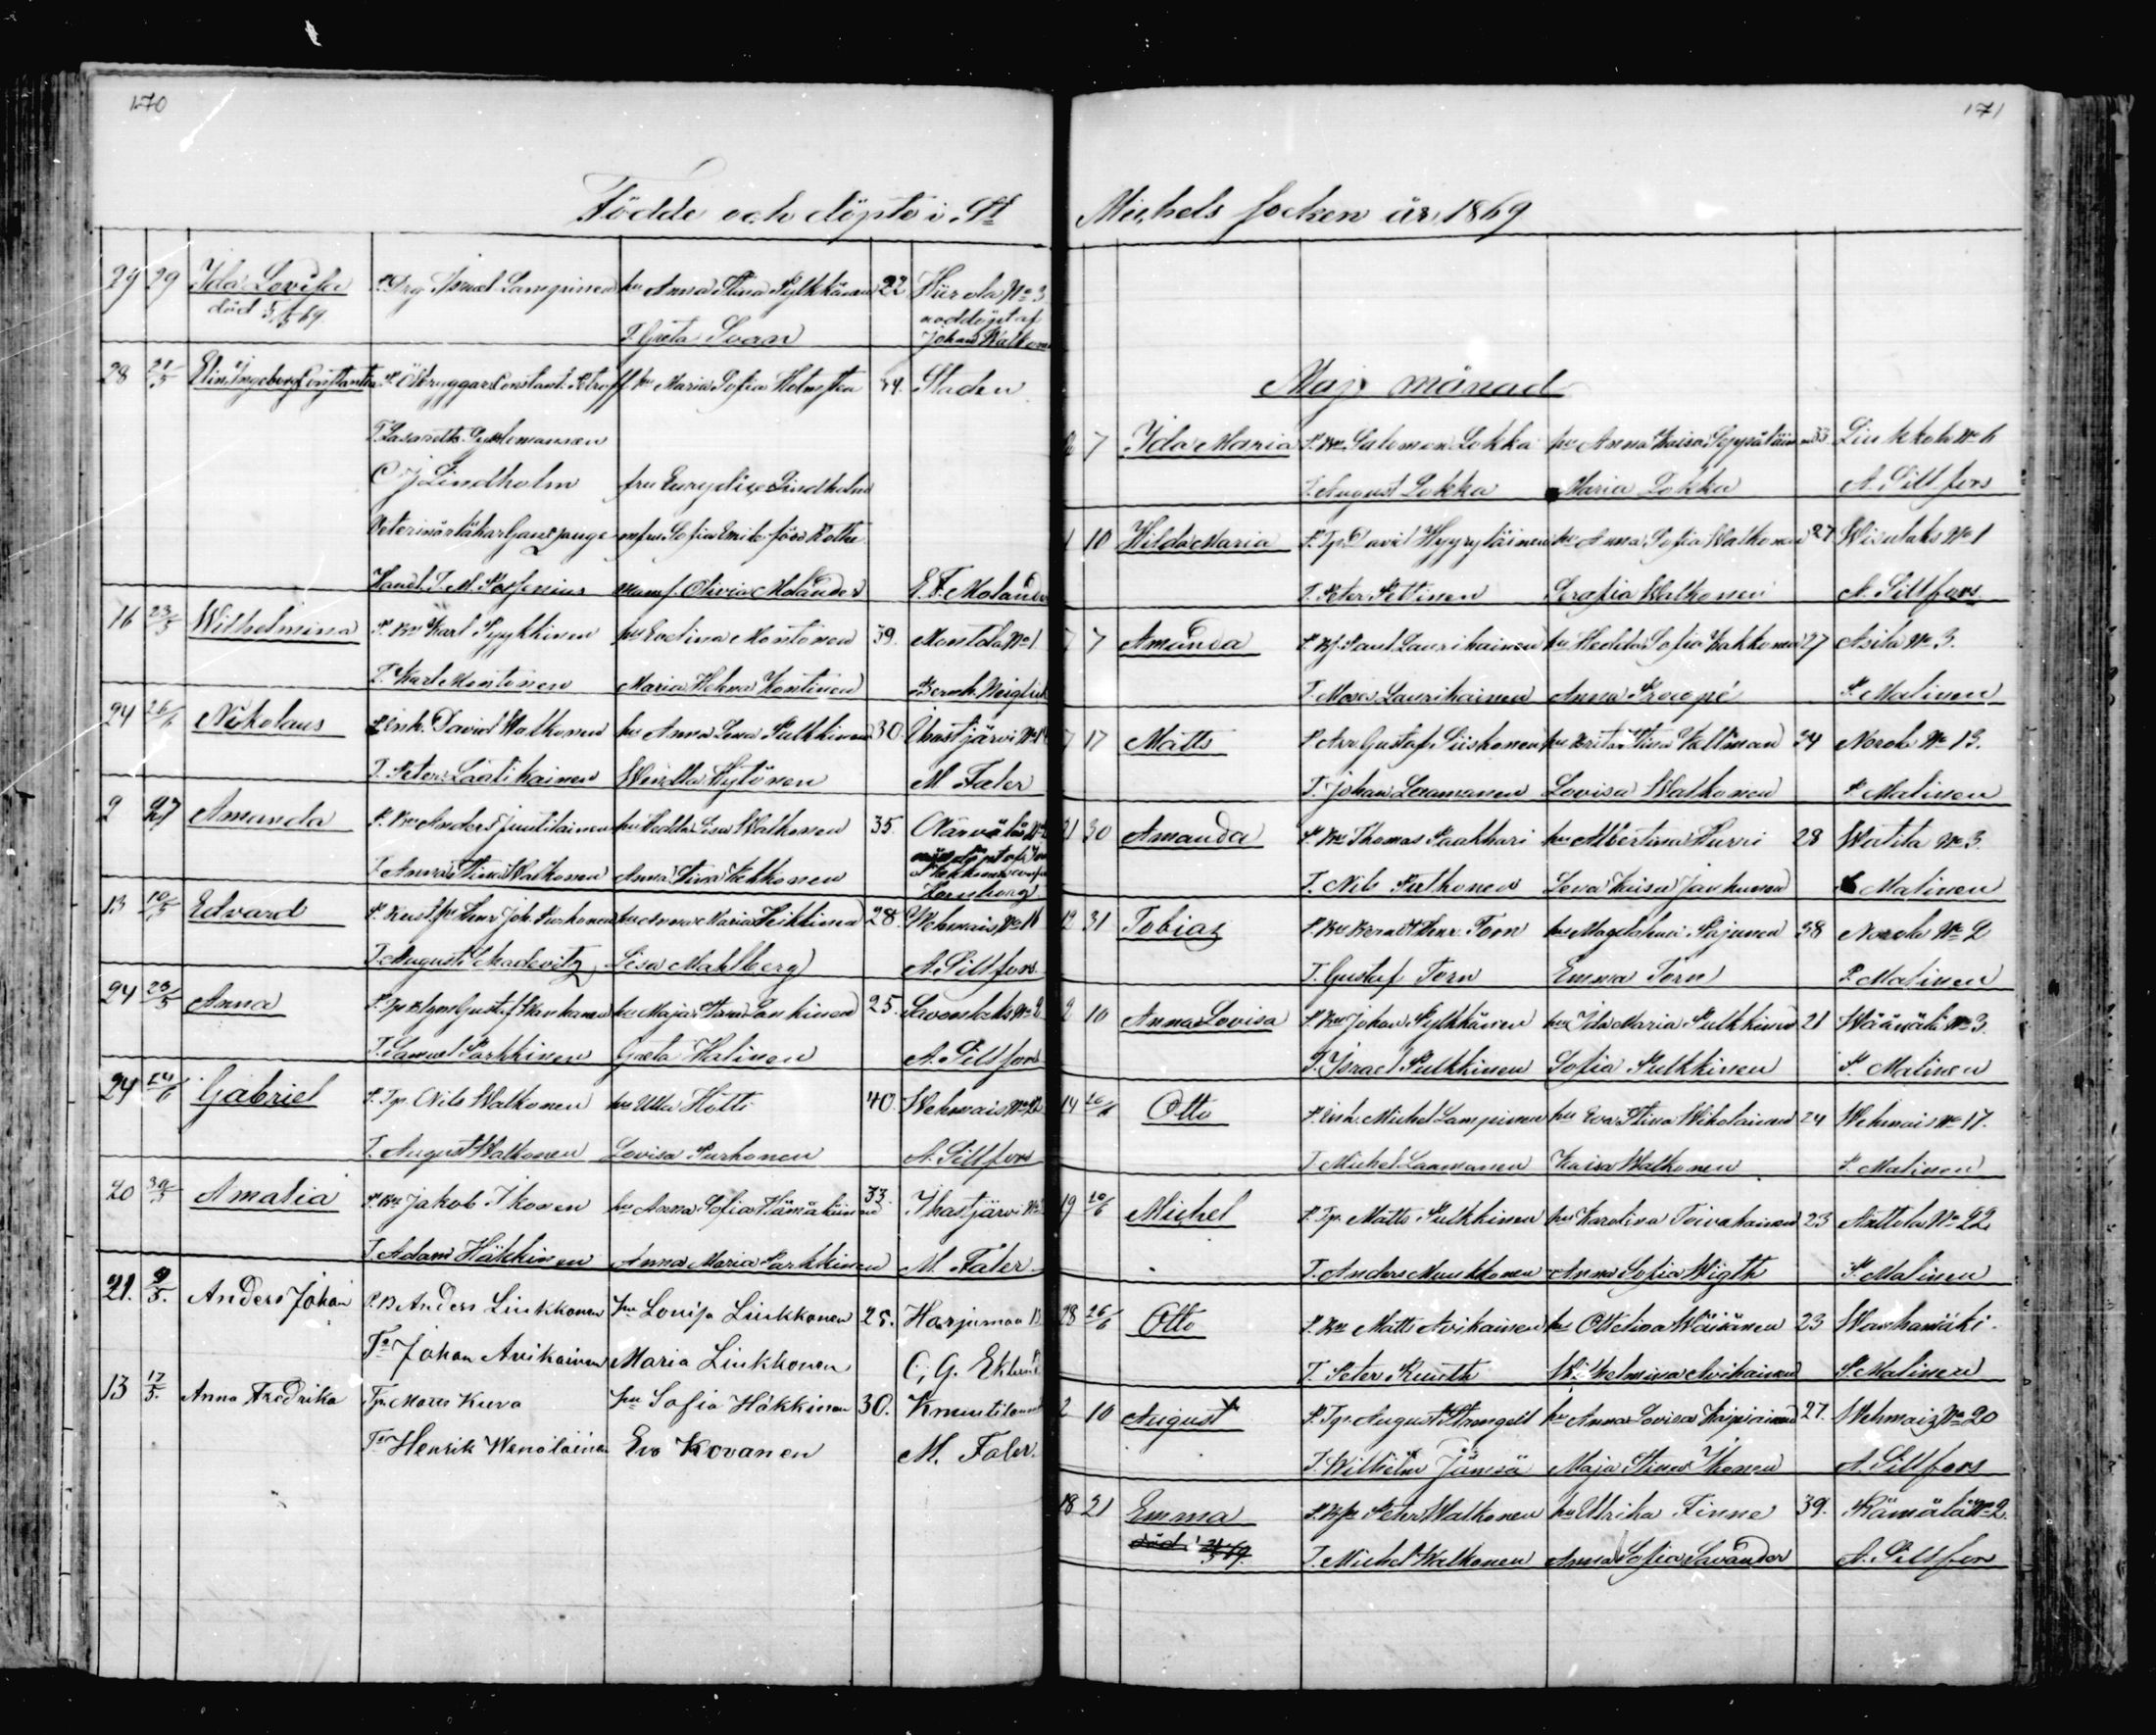 170
Födde och döpte i St
29 29 Ida Lovisa Israel Lampinen hu Anna Stina Pylkkänen 22 Hiirola No 3
död nöddöpt af
T. Greta Soan Johan Walkonen
28 21/5 Elin Ingeborg Constantia Constant. Petroff hu Maria Sofia 34. Staden
T. Lasaretts
C J Lindholm fru Eurydice Lindholm
Veterinärläkar Sofia Emile Rothe
Handl. T. M. mams. Olivia Molander E. F. Molander
16 23/5 Wilhelmina Karl Pyykkinen hu Evelina Montonen 39. Montola No 1
T. Karl Montonen Maria Helena Kontinen Bernh.
24 26/6 Nikolaus P. Enh. David Walkonen hu Anna Lena Pulkkinen 30. Ihastjärvi No
T. Peter Laatikainen Wendla Hytönen M. Faler
2 27 Amanda Anders Juutilainen hu Hedda Lisa Walkonen 35. Närvälä No
T. Anna Stina Walkonen Anna Stina Kekkonen
13 10/5 Edvard Joh. Purhonen hu Anna Maria Heikkinen 28. Wehmais No 16
T. August Madevitz Lisa Mahlberg A. Sillfors
24 23/5 Anna Gustaf Maja Stina 25. Savonlaks No 2
T. Samuel Parkkinen Greta Halinen A. Sillfors
24 24/6 Gabriel P. Tp. Nils Walkonen hu Ulla Hotti 40. Wehmais No
T. August Walkonen Lovisa Purhonen A. Sillfors
20 30/5 Amalia Jakob Ikonen hu Anna Sofia Hämäläinen 33. Ihastjärvi No
T. Adam Häkkinen Anna Maria Parkkinen M. Faler
21. 9/5. Anders Johan P. B Anders Liukkonen hu Lovisa Liukkonen 25. Harjumaa
Tr Johan Avikainen Maria Liukkonen C. G. Eklund
13 17/5. Anna Fredrika Tp. Mats Kuva hu Sofia Häkkinen 30. Knuutila
Tr Henrik Wenäläinen Eva Kovanen M. Faler.
171
Michels socken år 1869
Maj månad
7 Ida Maria Salomon Lokka hu Anna Kaisa Seppäläinen 33 Liukkola No 6
T. August Lokka Maria Lokka A. Sillfors
10 Hilda Maria P. Tp. David Hyyryläinen hu Anna Sofia Walkonen 27 Wisulaks No 1
T. Peter Pettinen Serafia Walkonen A. Sillfors
7 7 Amanda Paul Laurikainen hu Hedda Sofia Kakkonen 27 Asila No 3.
T. Moses Laurikainen Anna P. Malinen
7 17 Matts Gustaf Siiskonen hu Brita Stina Kallman 34 Norola No 13.
T. Johan Laamanen Lovisa Walkonen P. Malinen
21 30 Amanda Thomas Paakkari hu Albertina Hurri 28 Watila No 3.
T. Nils Pulkonen Lena Kaisa Janhunen Malinen
12 31 Tobias Bernd Henr. Torn hu Magdalena Pajunen 38 Norola No 2
T. Gustaf Torn Emma Torn P. Malinen
2 10 Anna Lovisa Johan Pylkkänen hu Ida Maria Pulkkinen 21 Wäänälä No 3.
T. Israel Pulkkinen Sofia Pulkkinen P. Malinen
14 20/6 Otto P. Enh. Michel Lampinen hu Eva Stina Nikolainen 24 Wehmais No 17.
T. Michel Laamanen Kaisa Walkonen P. Malinen
19 20/6 Michel P. Tp. Matts Pulkkinen hu Karolina Toivakainen 23 Anttola No 22
T. Anders Muukkonen Anna Sofia Wigth P. Malinen
28 26/6 Otto Matts Avikainen hu Ottelina Wäisänen 23 Wanhamäki.
T. Peter Kuuth Wilhelmina Avikainen P. Malinen
2 10 August P. Tp. August Strengell hu Anna Lovisa 27. Wehmais No 20
T. Wilhelm Jämsä Maja Stina Ikonen A. Sillfors
18 21 Emma Peter Walkonen hu Ulrika Finne 39. Rämälä No 2
död T. Michel Walkonen Anna Sofia Savander A. Sillfors